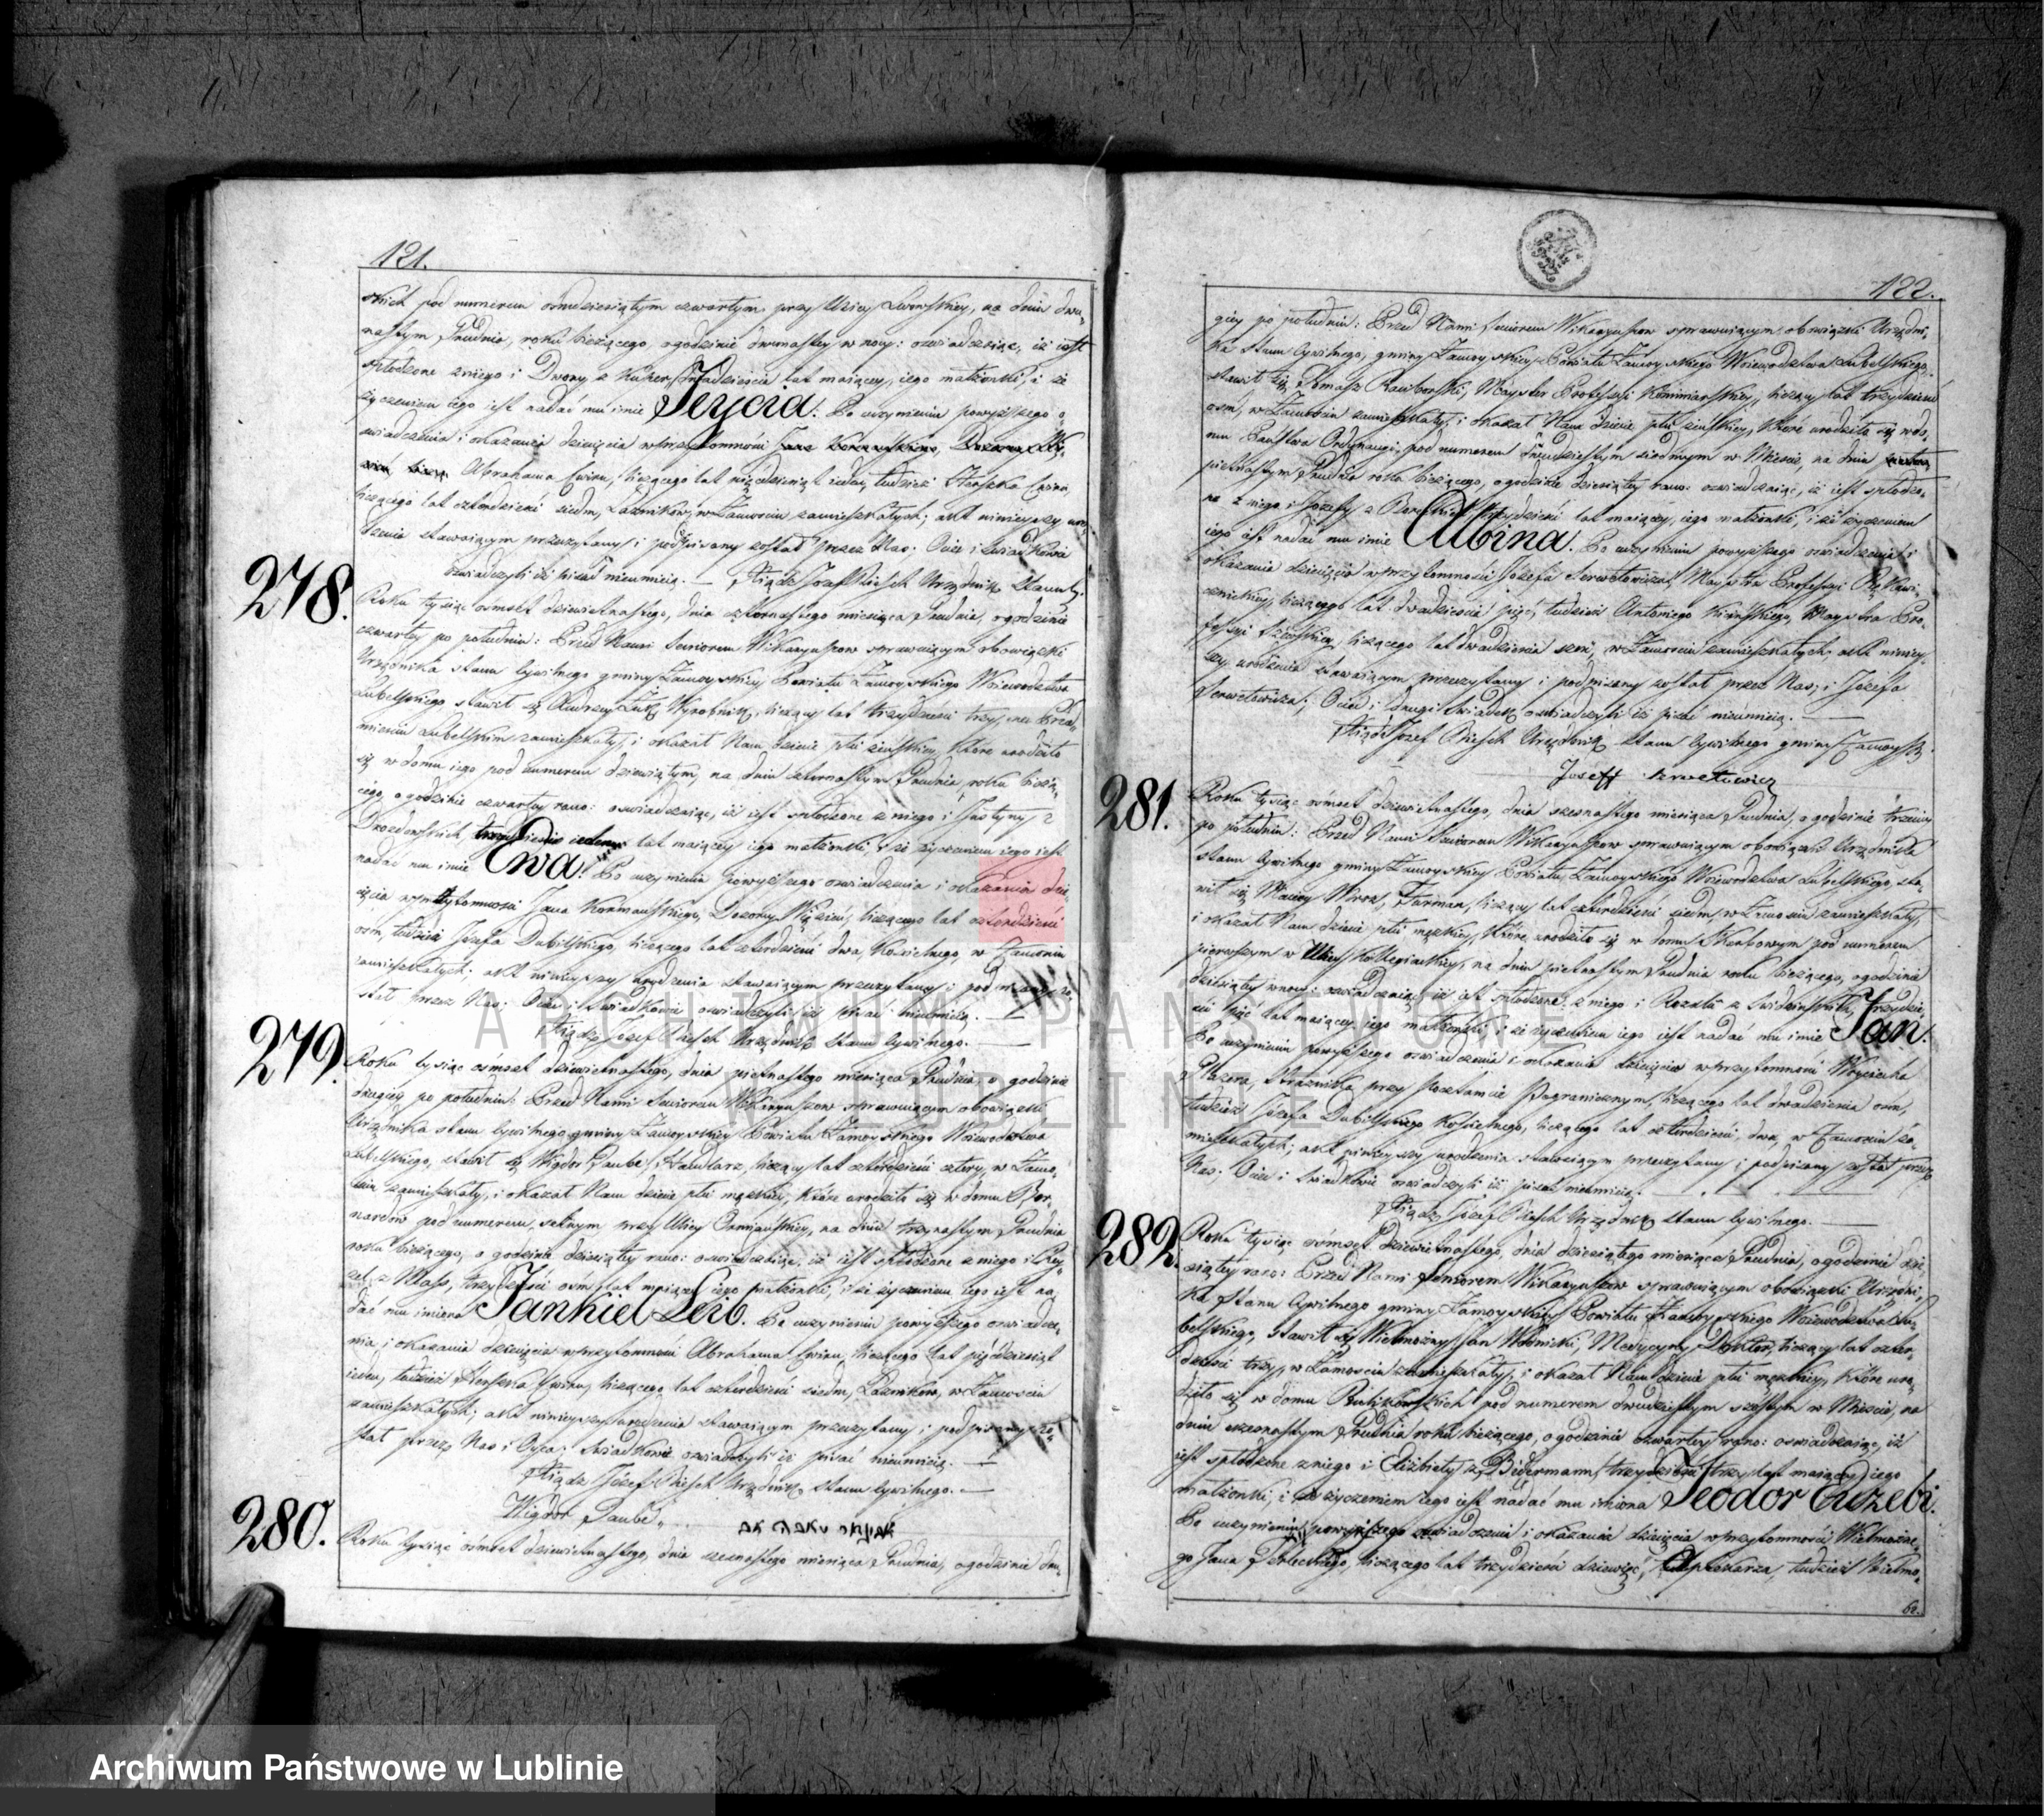 121.
skich pod numerem osmdziesiątym czwartym przy Ulicy Lwowskiey, na dniu dwu-
nastym Grudnia, roku bieżącego, o godzinie dwunastey w nocy: oswiadczaiąc, iż iest
spłodzone z niego i Dwory z dwadzieścia lat maiącey, iego małżonki, i że
życzeniem iego iest nadać mu imie Po uczynieniu powyższego o-
swiadczenia i okazaniu dziecięcia w przytomności
Abrahama liczącego lat pięćdziesiąt ieden, tudzież Herszka
liczącego lat czterdzieści siedm, w Zamościu zamieszkałych; akt ninieyszy uro-
dzenia stawaiącym przeczytany i podpisany został przez Nas; Ociec i Swiadkowie
oswiadczyli iż pisać nieumieią. — Xiądz Józef Urzędnik Stanu
278.
Roku tysiąc osmset dziewiętnastego, dnia czternastego miesiąca Grudnia, o godzinie
czwartey po południu: Przed Nami Seniorem Wikaryuszow sprawuiącym obowiązki
Urzędnika stanu Cywilnego gminy Zamoyskiey Powiatu Zamoyskiego Woiewodztwa
Lubelskiego stawił się Andrzey Wyrobnik, liczący lat trzydzieści trzy, na Przed-
mieściu Lubelskim zamieszkały, i okazał Nam dziecie płci żeńskiey, które urodziło
się w domu iego pod numerem dziewiątym, na dniu czternastym Grudnia, roku bieżą-
cego, o godzinie czwartey rano: oswiadczaiąc, iż iest spłodzone z niego i Justyny z
Drozdowskich, lat maiącey iego małżonki, i że życzeniem iego iest
nadać mu imie Ewa. Po uczynieniu powyższego oswiadczenia i okazaniu dzie-
cięcia w przytomności Jana Kormanskiego, Dozorcy Więzień, liczącego lat czterdzieści
osm, tudzież Józefa Dubilskiego, liczącego lat czterdzieści dwa, Kościelnego, w Zamościu
zamieszkałych; akt ninieyszy urodzenia stawaiącym przeczytany i podpisany zo-
stał przez Nas; Ociec i Swiadkowie oswiadczyli iż pisać nieumieią. —
Xiądz Józef Urzędnik Stanu Cywilnego. —
279.
Roku tysiąc osmset dziewiętnastego, dnia piętnastego miesiąca Grudnia, o godzinie
drugiey po południu: Przed Nami Seniorem Wikaryuszow sprawuiącym obowiązki
Urzędnika stanu Cywilnego gminy Zamoyskiey Powiatu Zamoyskiego Woiewodztwa
Lubelskiego, stawił się Wigdor Taube, Handlarz, liczący lat czterdzieści cztery, w Zamo-
ściu zamieszkały, i okazał Nam dziecie płci męzkiey, które urodziło się w domu Ber-
nardow pod numerem setnym przy Ulicy Ormiańskiey, na dniu trzynastym Grudnia
roku bieżącego, o godzinie dziesiątey rano: oswiadczaiąc, iż iest spłodzone z niego i Rey-
zel z trzydzieści osm lat maiącey iego małżonki, i że życzeniem iego iest na-
dać mu imiona Jankiel Leib. Po uczynieniu powyższego oswiadcze-
nia i okazaniu dziecięcia w przytomności Abrahama liczącego lat pięćdziesiąt
ieden, tudzież Herszka liczącego lat czterdzieści siedm, w Zamościu
zamieszkałych; akt ninieyszy urodzenia stawaiącym przeczytany i podpisany zo-
stał przez Nas i Oyca; Swiadkowie oswiadczyli iż pisać nieumieią. —
Xiądz Józef Urzędnik Stanu Cywilnego. —
Wigdor Taube
280.
Roku tysiąc osmset dziewiętnastego, dnia szesnastego miesiąca Grudnia, o godzinie dru-
122.
giey po południu: Przed Nami Seniorem Wikaryuszow sprawuiącym obowiązki Urzędni-
ka Stanu Cywilnego, gminy Zamoyskiey Powiatu Zamoyskiego Woiewodztwa Lubelskiego,
stawił się Tomasz Mayster Professyi Kominiarskiey, liczący lat trzydzieści
osm, w Zamościu zamieszkały, i okazał Nam dziecie płci żeńskiey, które urodziło się w do-
mu Państwa Ordynacyi, pod numerem dwudziestym siodmym w Mieście, na dniu
piętnastym Grudnia roku bieżącego, o godzinie dziesiątey rano: oswiadczaiąc, iż iest spłodzo-
ne z niego i Jozefy z trzydzieści lat maiącey, iego małżonki, i że życzeniem
iego iest nadać mu imie Albina. Po uczynieniu powyższego oswiadczenia i
okazaniu dziecięcia w przytomności Józefa Serwetowicza Maystra Professyi Rękawi-
czniczey, liczącego lat dwadzieścia pięć, tudzież Antoniego Maystra Pro-
fessyi liczącego lat dwadzieścia w Zamościu zamieszkałych; akt niniey-
szy urodzenia stawaiącym przeczytany i podpisany został przez Nas; i Józefa
Serwetowicza; Ociec i drugi swiadek oswiadczyli iż pisać nieumieią. —
Xiądz Józef Urzędnik Stanu Cywilnego gminy Zamoyskiey.
Joseff
281.
Roku tysiąc osmset dziewiętnastego, dnia szesnastego miesiąca Grudnia, o godzinie trzeciey
po południu: Przed Nami Seniorem Wikaryuszow sprawuiącym obowiązki Urzędnika
stanu Cywilnego gminy Zamoyskiey Powiatu Zamoyskiego Woiewodztwa Lubelskiego, sta-
wił się Maciey Furman, liczący lat czterdzieści siedm, w Zamościu zamieszkały,
i okazał Nam dziecie płci męzkiey, które urodziło się w domu Skarbowym pod numerem
pierwszym w Ulicy Kollegiackiey, na dniu piętnastym Grudnia roku bieżącego, o godzinie
dziesiątey w nocy: oswiadczaiąc, iż iest spłodzone z niego i Rozalii z trzydzie-
ści pięć lat maiącey, iego małżonki, i że życzeniem iego iest nadać mu imie Jan.
Po uczynieniu powyższego oswiadczenia i okazaniu dziecięcia w przytomności Woyciecha
Strażnika przy Pogranicznym, liczącego lat dwadzieścia osm,
tudzież Józefa Dubilskiego Kościelnego, liczącego lat czterdzieści dwa, w Zamościu za-
mieszkałych; akt ninieyszy urodzenia stawaiącym przeczytany i podpisany został przez
Nas; Ociec i swiadkowie oswiadczyli iż pisać nieumieią. —
Xiądz Józef Urzędnik Stanu Cywilnego. —
282.
Roku tysiąc osmset dziewiętnastego, dnia dziesiątego miesiąca Grudnia, o godzinie dzie-
siątey rano: Przed Nami Seniorem Wikaryuszow sprawuiącym obowiązki Urzędni-
ka Stanu Cywilnego gminy Zamoyskiey Powiatu Zamoyskiego Woiewodztwa Lu-
belskiego, stawił się Wielmożny Jan Medycyny Doktor, liczący lat czter-
dzieści trzy, w Zamościu zamieszkały, i okazał Nam dziecie płci męzkiey, które uro-
dziło się w domu pod numerem dwudziestym szóstym w Mieście, na
dniu szesnastym Grudnia roku bieżącego, o godzinie czwartey rano: oswiadczaiąc, iż
iest spłodzone z niego i Elżbiety z Bidermann trzydzieści trzy lat maiącey iego
małżonki, i że życzeniem iego iest nadać mu imiona Teodor Euzebi.
Po uczynieniu powyższego oswiadczenia i okazaniu dziecięcia w przytomności Wielmożne-
go Jana liczącego lat trzydzieści dziewięć, Aptekarza, tudzież Wielmo-
62.
ARCHIWUM PAŃSTWOWE
W LUBLINIE
Archiwum Państwowe w Lublinie